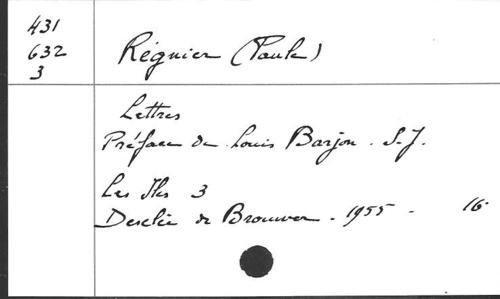 431
632
3
Régnier (Paule)
Lettres
Préface de Louis Barjon. S.J.
Les Iles 3
Desclée de Brouwer. 1955. 16.